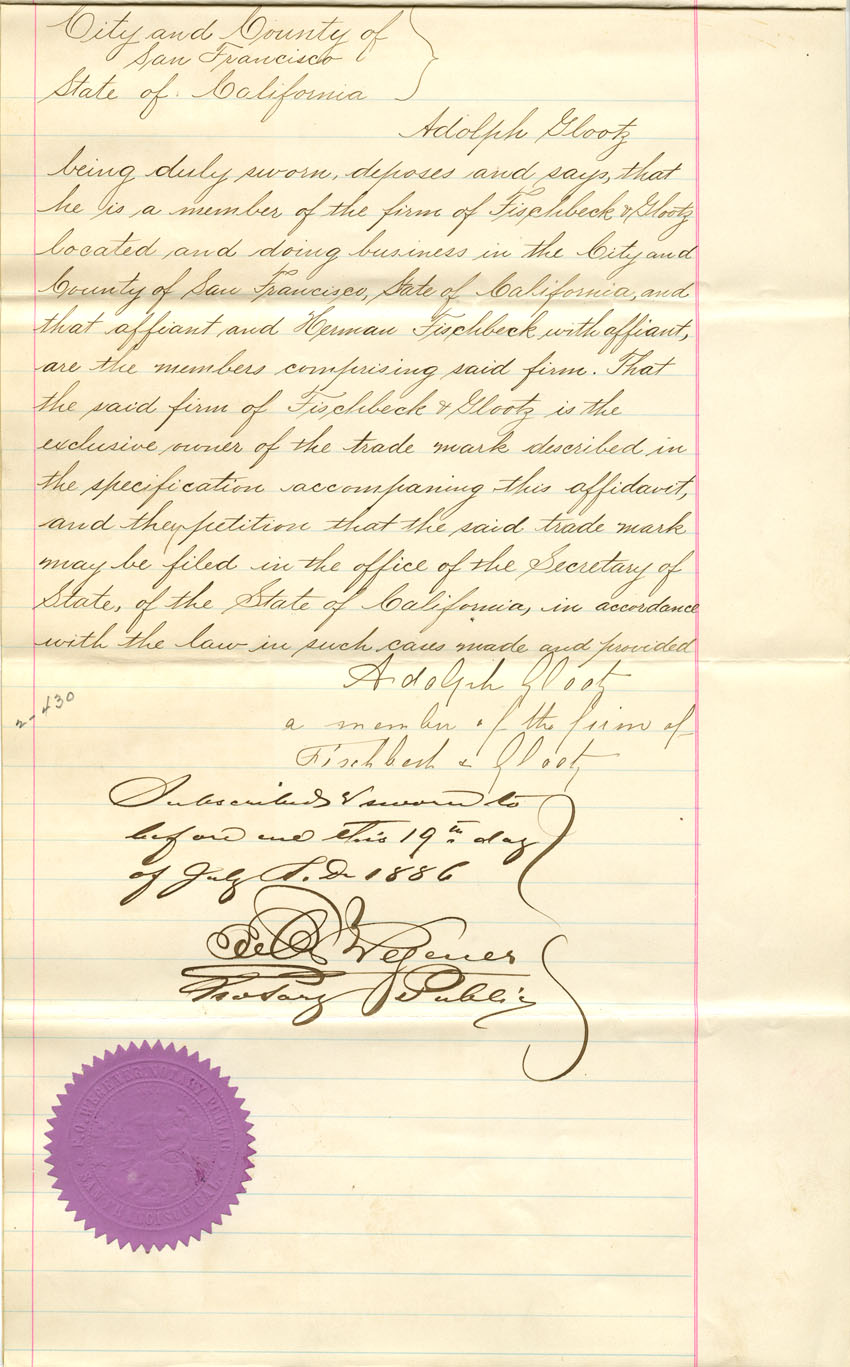 City and County of
San Francisco
State of California
Adolph Glootz
being duly sworn, deposes and says, that
he is a member of the firm of Fischbeck & Glootz
located and doing business in the City and
County of San Francisco, State of California, and
that affiant and Herman Fischbeck with affiant,
are the members comprising said firm. That
the said firm of Fischbeck & Glootz is the
exclusive owner of the trade mark described in
the specification accompaning this affidavit,
and they petition that the said trade mark
may be filed in the office of the Secretary of
State, of the State of California, in accordance
with the law in such cases made and provided
Adolph Glootz
2-430
a member of the firm of
Fischbeck & Glootz
Subscribed & sworn to
before me this 19th day
of July A.D. 1886
Wegener
Notary Public
WEGENER NOTARY PUBLIC
SAN FRANCISCO CAL.